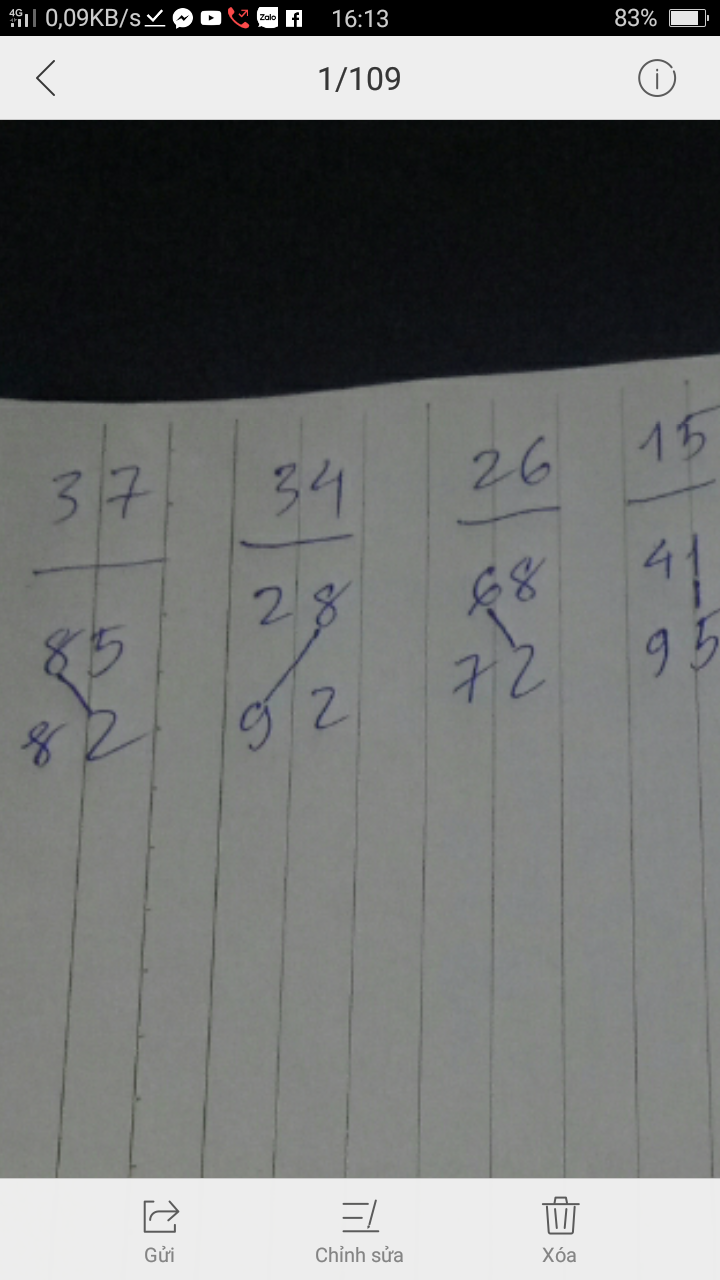 4G 0,09KB/s Zalo 16:13 83%
1/109
37 34 26 15
85 28 68 41
82 92 72 95
Gửi Chỉnh sửa Xóa